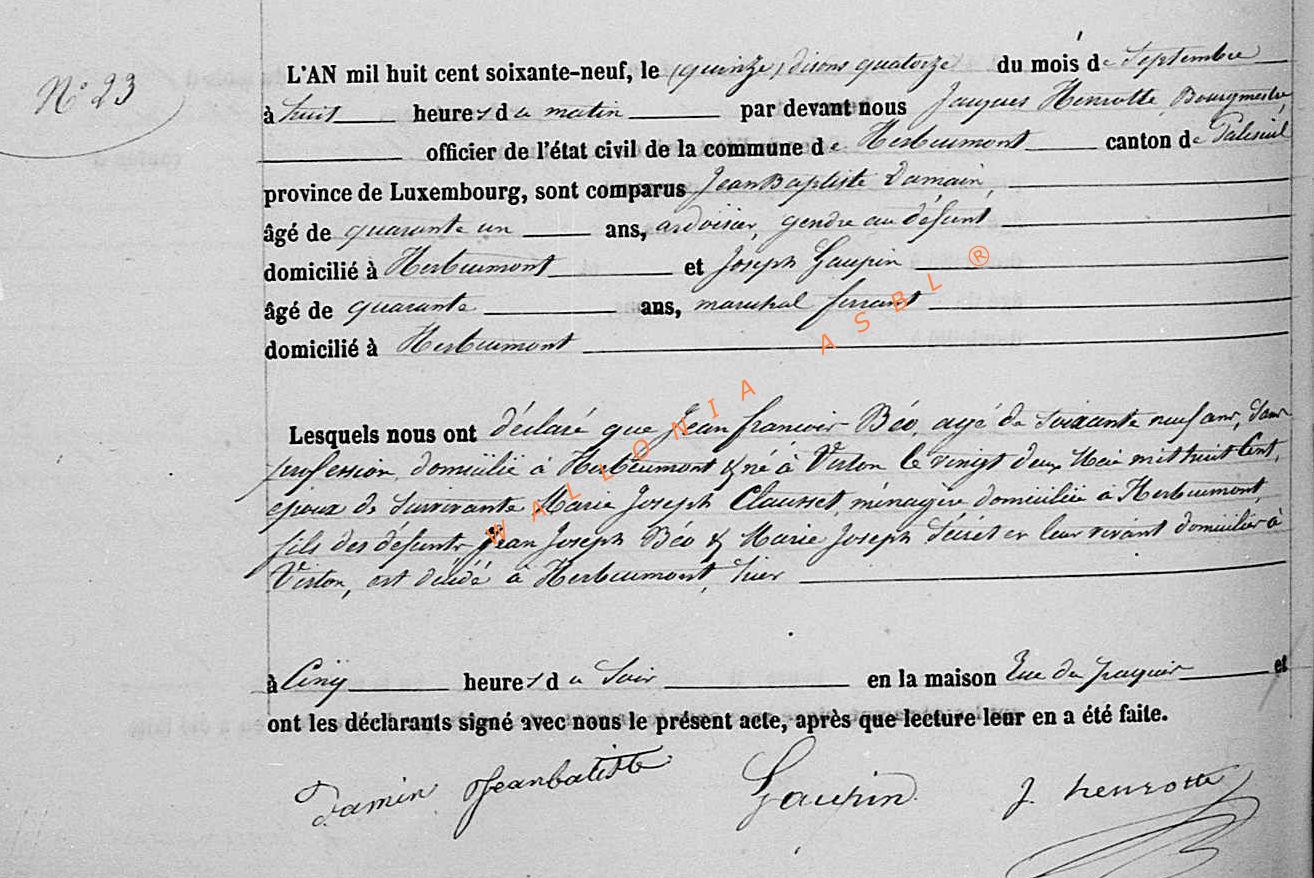 N° 23
L'AN mil huit cent soixante-neuf, le (quinze) disons quatorze du mois de Septembre
à huit heures du matin par devant nous Jacques Henrotte, Bourgmestre,
officier de l'état civil de la commune de Herbeumont canton de Paliseul
province de Luxembourg, sont comparus Jean Baptiste Damain,
âgé de quarante un ans, ardoisier, gendre au défunt
domicilié à Herbeumont et Joseph Gaupin
âgé de quarante ans, marechal ferrant
domicilié à Herbeumont
Lesquels nous ont déclaré que Jean francois Béo, agé de Soixante neuf ans, Sans
profession, domicilié à Herbeumont & né à Virton le vingt deux Mai mil huit Cent,
époux de Survivante Marie Joseph Clausset, ménagère domiciliée à Herbeumont,
fils des défunts Jean Joseph Béo & Marie Joseph en leur vivant domiciliés à
Virton, est décédé à Herbeumont, hier
à Cinq heures du Soir en la maison Rue du paquis et
ont les déclarants signé avec nous le présent acte, après que lecture leur en a été faite.
Damin Jeanbatiste Gaupin J. henrotte
WALLONIA ASBL ®